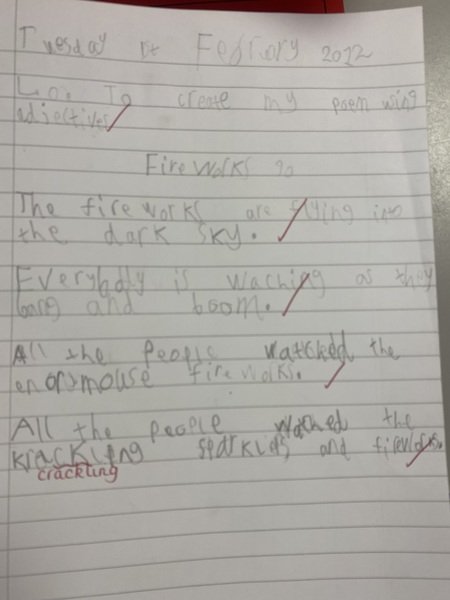 Tuesday 1st Febriory 2022
L.o. To create my poem using
adjectives
Fireworks
The fireworks are flying into
the dark sky.
Everybadly is waching as they
bang and boom.
All the People watched the
enormouse fireworks.
All the people watched the
krackling sparklers and fireworks.
crackling